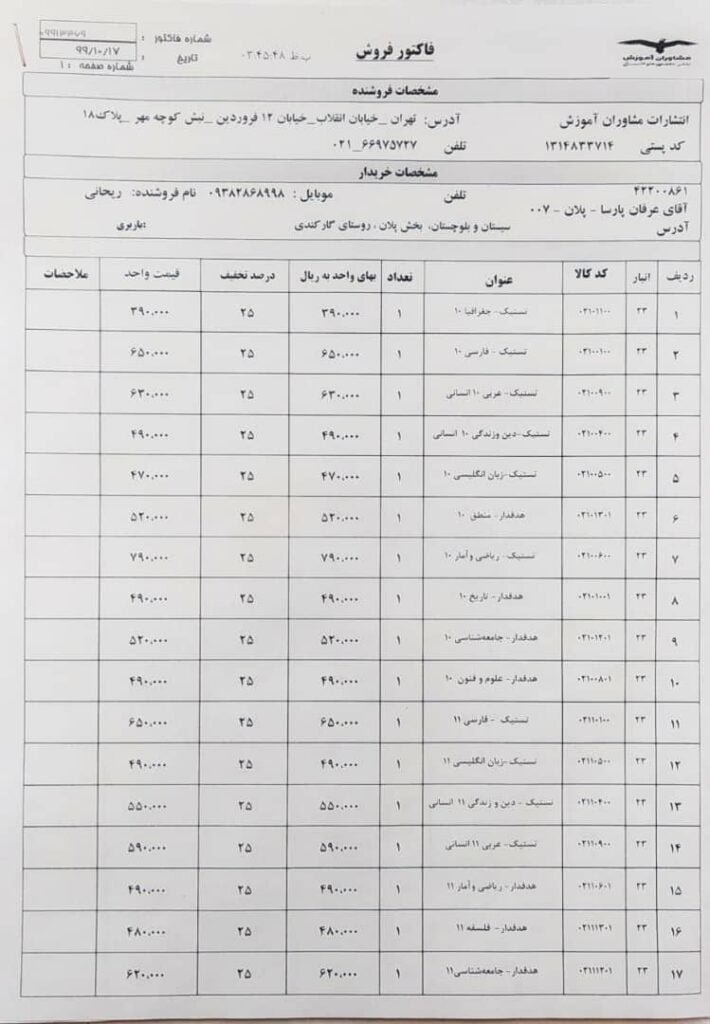 مشاوران آموزش
فاکتور فروش
ب.ظ ۰۳:۴۵:۴۸
شماره فاکتور :
تاریخ : ۹۹/۱۰/۱۷
شماره صفحه : ۱
مشخصات فروشنده
انتشارات مشاوران آموزش آدرس: تهران _خیابان انقلاب_خیابان ۱۲ فروردین _نبش کوچه مهر _پلاک۱۸
کد پستی ۱۳۱۴۸۳۳۷۱۴ تلفن ۰۲۱_۶۶۹۷۵۷۲۷
مشخصات خریدار
۴۲۲۰۰۸۶۱ تلفن موبایل : ۰۹۳۸۲۸۶۸۹۹۸ نام فروشنده: ریحانی
آقای عرفان پارسا - پلان - ۰۰۷
آدرس سیستان و بلوچستان، بخش پلان ، روستای گارکندی باربری:
ردیف انبار کد کالا عنوان تعداد بهای واحد به ریال درصد تخفیف قیمت واحد ملاحضات
۱ ۲۳ ۰۲۱۰۱۱۰۰ تستیک- جغرافیا ۱۰ ۱ ۳۹۰,۰۰۰ ۲۵ ۳۹۰,۰۰۰
۲ ۲۳ ۰۲۱۰۰۱۰۰ تستیک - فارسی ۱۰ ۱ ۶۵۰,۰۰۰ ۲۵ ۶۵۰,۰۰۰
۳ ۲۳ ۰۲۱۰۰۹۰۰ تستیک- عربی ۱۰ انسانی ۱ ۶۳۰,۰۰۰ ۲۵ ۶۳۰,۰۰۰
۴ ۲۳ ۰۲۱۰۰۴۰۰ تستیک-دین وزندگی ۱۰ انسانی ۱ ۴۹۰,۰۰۰ ۲۵ ۴۹۰,۰۰۰
۵ ۲۳ ۰۲۱۰۰۵۰۰ تستیک-زبان انگلیسی ۱۰ ۱ ۴۷۰,۰۰۰ ۲۵ ۴۷۰,۰۰۰
۶ ۲۳ ۰۲۱۰۱۳۰۱ هدفدار- منطق ۱۰ ۱ ۵۲۰,۰۰۰ ۲۵ ۵۲۰,۰۰۰
۷ ۲۳ ۰۲۱۰۰۶۰۰ تستیک - ریاضی و آمار ۱۰ ۱ ۷۹۰,۰۰۰ ۲۵ ۷۹۰,۰۰۰
۸ ۲۳ ۰۲۱۰۱۰۰۱ هدفدار- تاریخ ۱۰ ۱ ۴۹۰,۰۰۰ ۲۵ ۴۹۰,۰۰۰
۹ ۲۳ ۰۲۱۰۱۲۰۱ هدفدار- جامعه‌شناسی ۱۰ ۱ ۵۲۰,۰۰۰ ۲۵ ۵۲۰,۰۰۰
۱۰ ۲۳ ۰۲۱۰۰۸۰۱ هدفدار- علوم و فنون ۱۰ ۱ ۴۹۰,۰۰۰ ۲۵ ۴۹۰,۰۰۰
۱۱ ۲۳ ۰۲۱۱۰۱۰۰ تستیک - فارسی ۱۱ ۱ ۶۵۰,۰۰۰ ۲۵ ۶۵۰,۰۰۰
۱۲ ۲۳ ۰۲۱۱۰۵۰۰ تستیک-زبان انگلیسی ۱۱ ۱ ۴۹۰,۰۰۰ ۲۵ ۴۹۰,۰۰۰
۱۳ ۲۳ ۰۲۱۱۰۴۰۰ تستیک - دین و زندگی ۱۱ انسانی ۱ ۵۵۰,۰۰۰ ۲۵ ۵۵۰,۰۰۰
۱۴ ۲۳ ۰۲۱۱۰۹۰۰ تستیک- عربی ۱۱ انسانی ۱ ۵۹۰,۰۰۰ ۲۵ ۵۹۰,۰۰۰
۱۵ ۲۳ ۰۲۱۱۰۶۰۱ هدفدار- ریاضی و آمار ۱۱ ۱ ۴۹۰,۰۰۰ ۲۵ ۴۹۰,۰۰۰
۱۶ ۲۳ ۰۲۱۱۱۳۰۱ هدفدار- فلسفه ۱۱ ۱ ۴۸۰,۰۰۰ ۲۵ ۴۸۰,۰۰۰
۱۷ ۲۳ ۰۲۱۱۱۲۰۱ هدفدار- جامعه‌شناسی۱۱ ۱ ۶۲۰,۰۰۰ ۲۵ ۶۲۰,۰۰۰